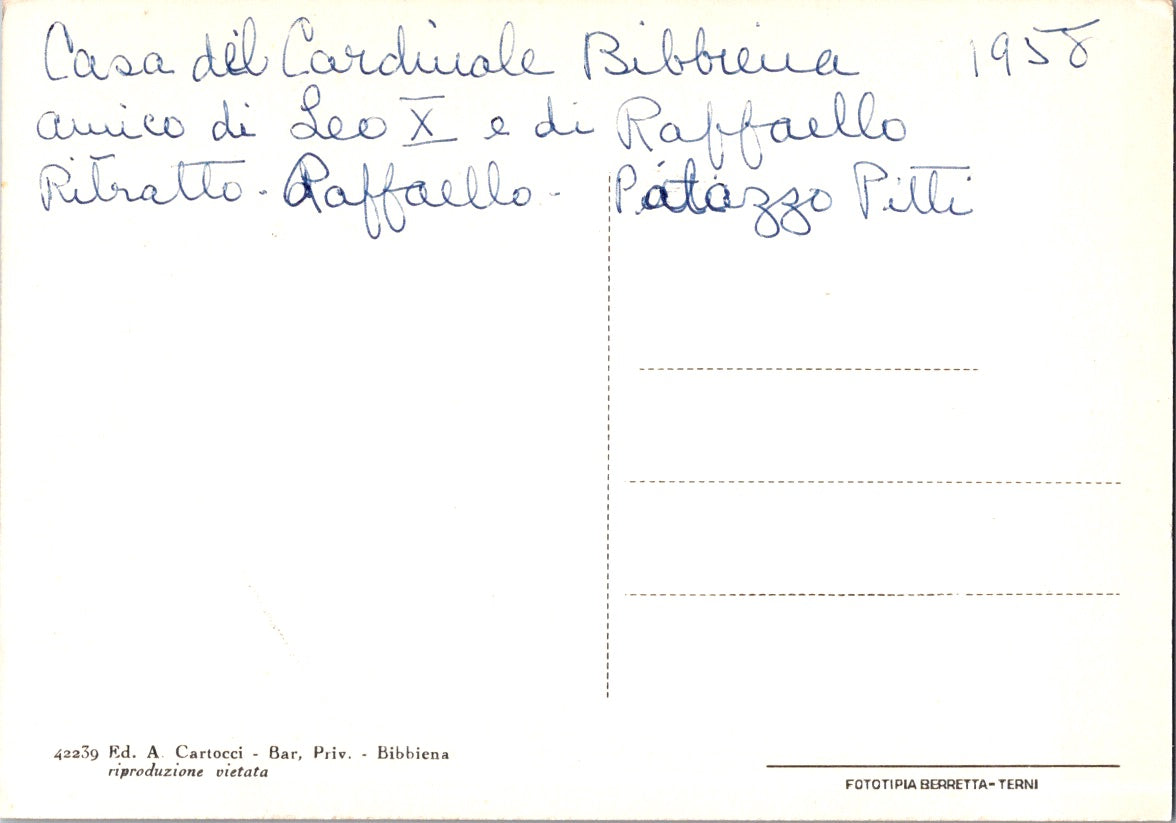 Casa del Cardinale Bibbiena 1958
amico di Leo X e di Raffaello
Ritratto - Raffaello - Palazzo Pitti
42239 Ed. A. Cartocci - Bar, Priv. - Bibbiena
riproduzione vietata
FOTOTIPIA BERRETTA - TERNI